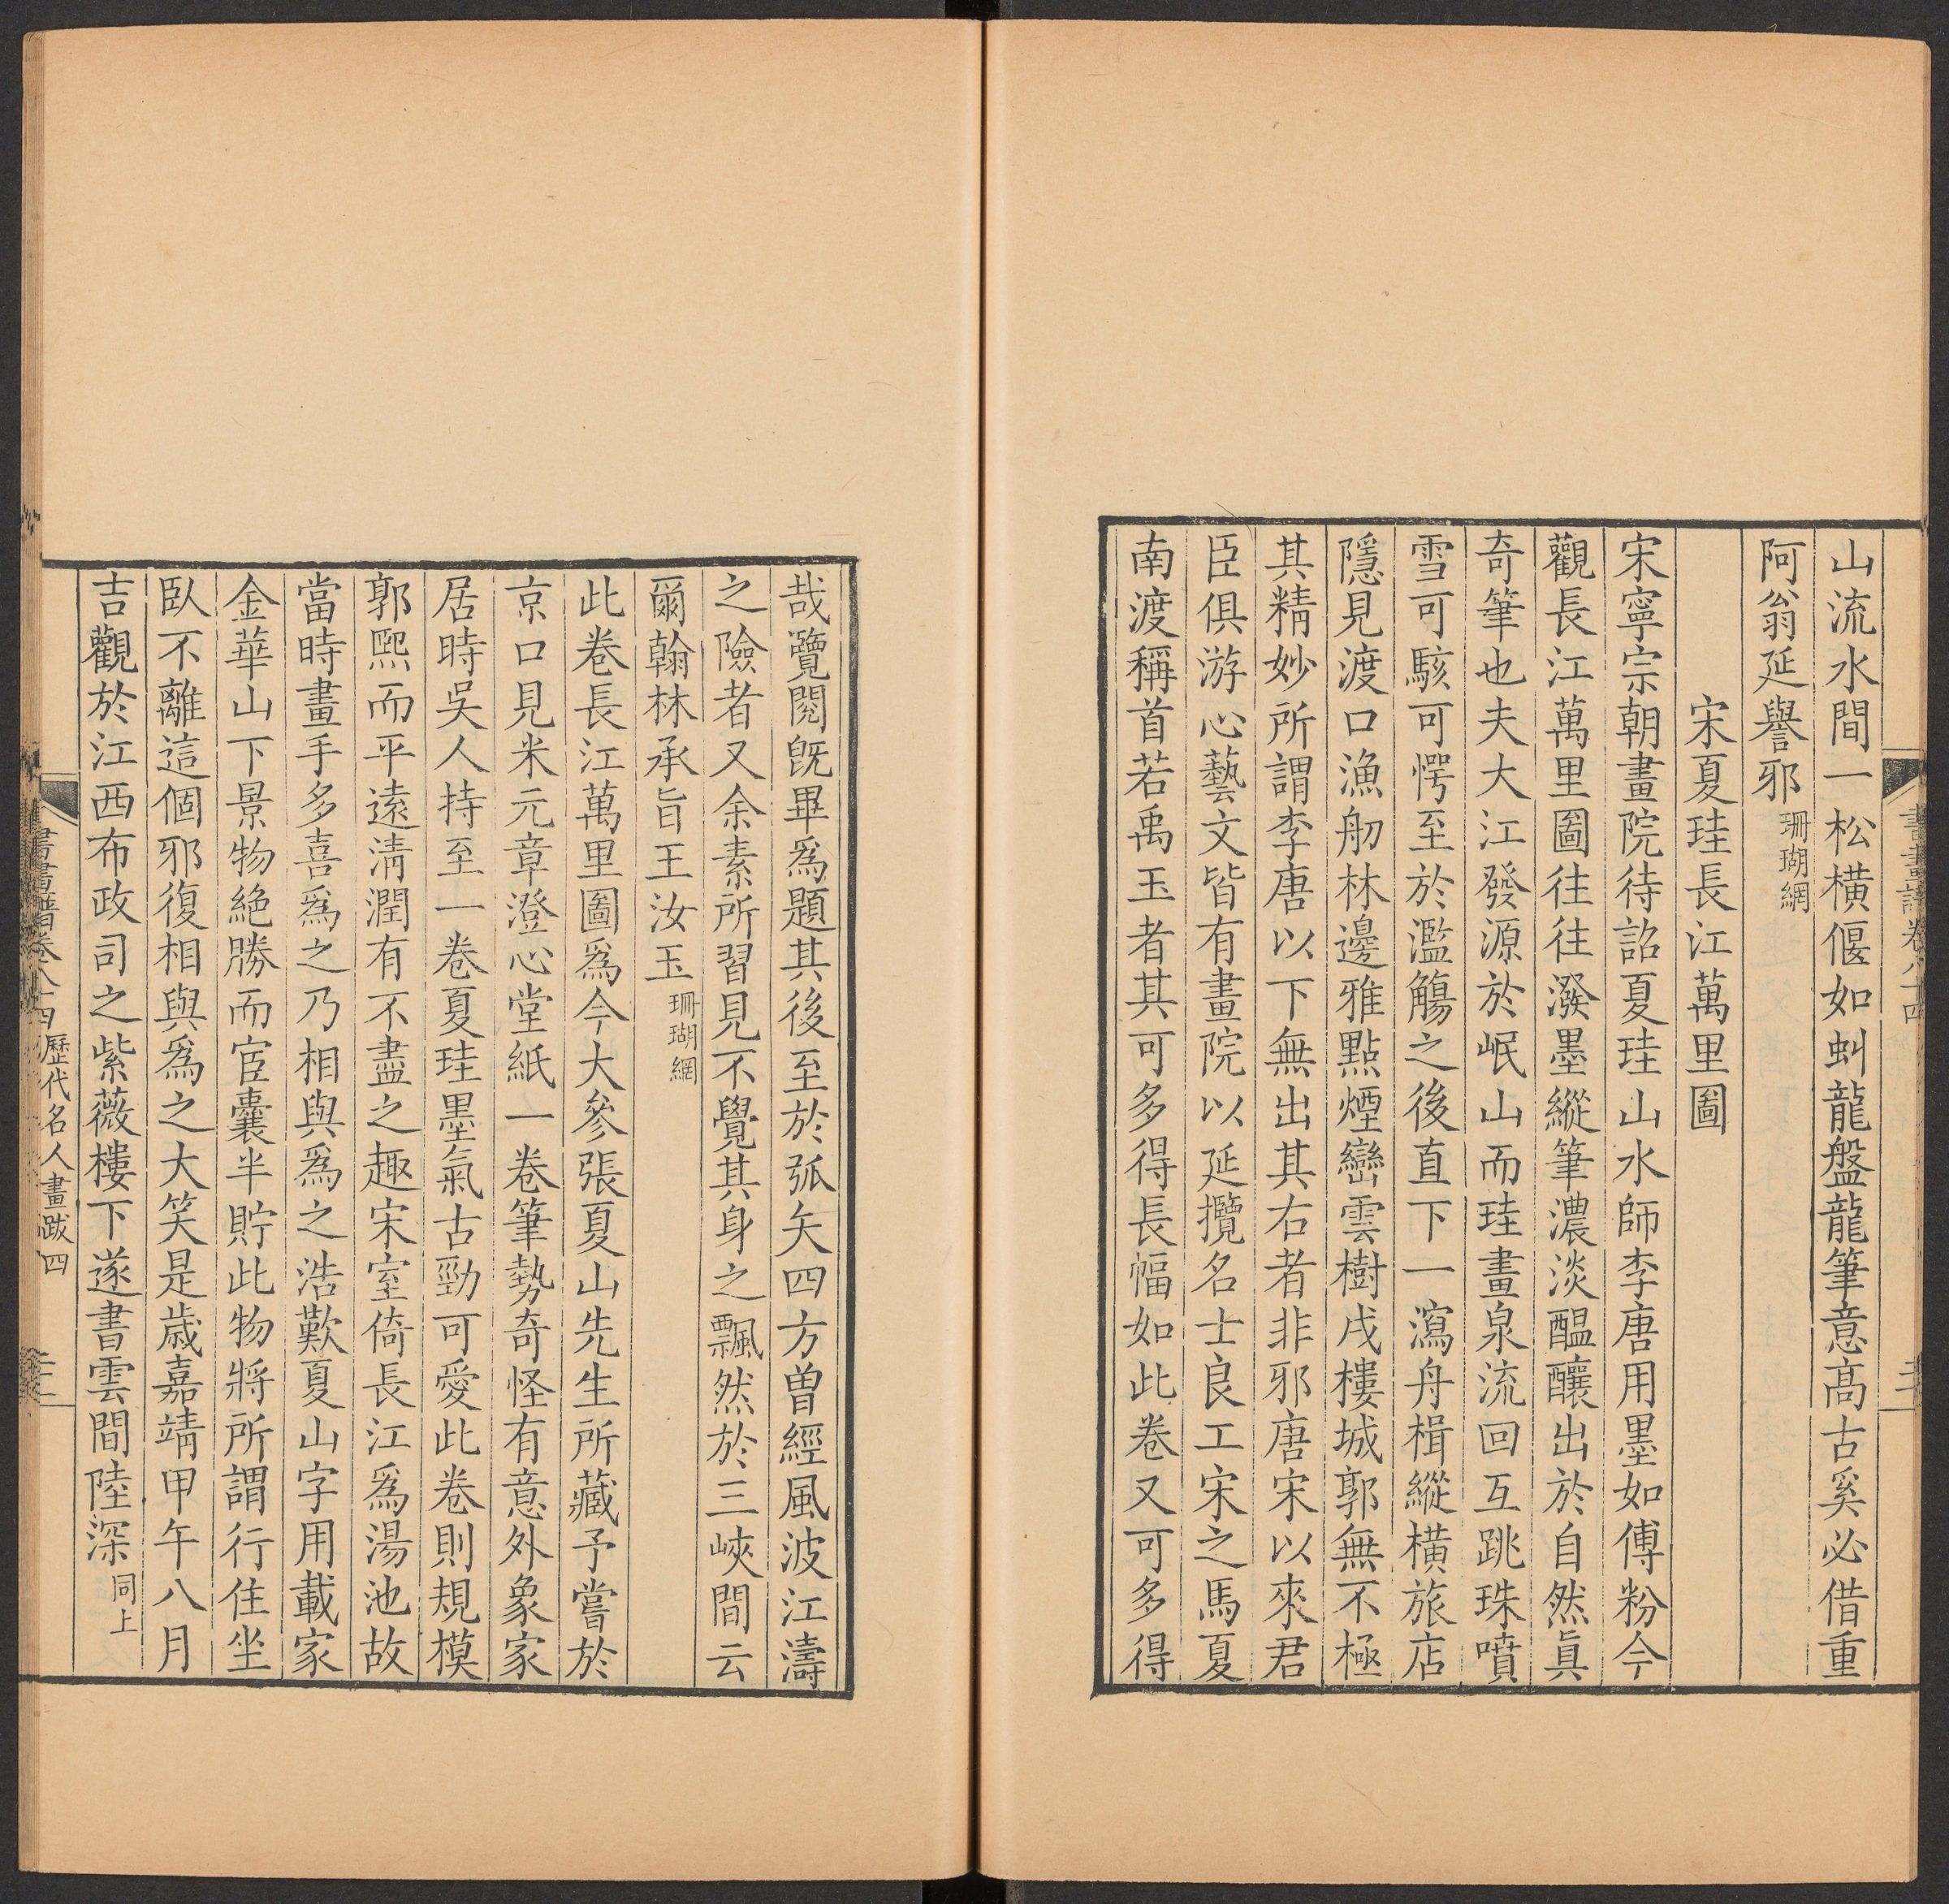 山流水間一松橫偃如虯龍盤龍筆意高古奚必借重
阿翁延譽邪 珊瑚網
宋夏珪長江萬里圖
宋寧宗朝畫院待詔夏珪山水師李唐用墨如傅粉今
觀長江萬里圖往往潑墨縱筆濃淡醞釀出於自然眞
奇筆也夫大江發源於岷山而珪畫泉流回互跳珠噴
雪可駭可愕至於濫觴之後直下一瀉舟楫縱橫旅店
隱見渡口漁舠林邊雅點煙巒雲樹戍樓城郭無不極
其精妙所謂李唐以下無出其右者非邪唐宋以來君
臣俱游心藝文皆有畫院以延攬名士良工宋之馬夏
南渡稱首若禹玉者其可多得長幅如此卷又可多得
書畫譜卷八十四
哉覽閱旣畢爲題其後至於弧矢四方曾經風波江濤
之險者又余素所習見不覺其身之飄然於三峽間云
爾翰林承旨王汝玉 珊瑚網
此卷長江萬里圖爲今大參張夏山先生所藏予嘗於
京口見米元章澄心堂紙一卷筆勢奇怪有意外象家
居時吳人持至一卷夏珪墨氣古勁可愛此卷則規模
郭熙而平遠淸潤有不盡之趣宋室倚長江爲湯池故
當時畫手多喜爲之乃相與爲之浩歎夏山字用載家
金華山下景物絕勝而宦囊半貯此物將所謂行住坐
臥不離這個邪復相與爲之大笑是歲嘉靖甲午八月
吉觀於江西布政司之紫薇樓下遂書雲間陸深 同上
書畫譜卷八十四 歷代名人畫跋四